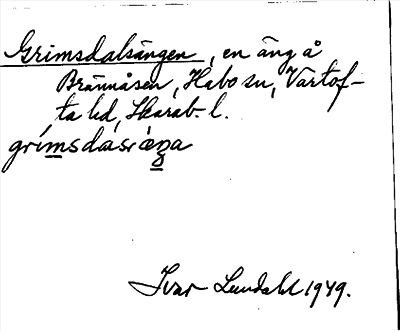 Grimsdalsängen, en äng å
Brännåsen, Habo sn, Vartof-
ta hd, Skarab. l.
grímsdàsràŋa
Ivar Lundahl 1949.